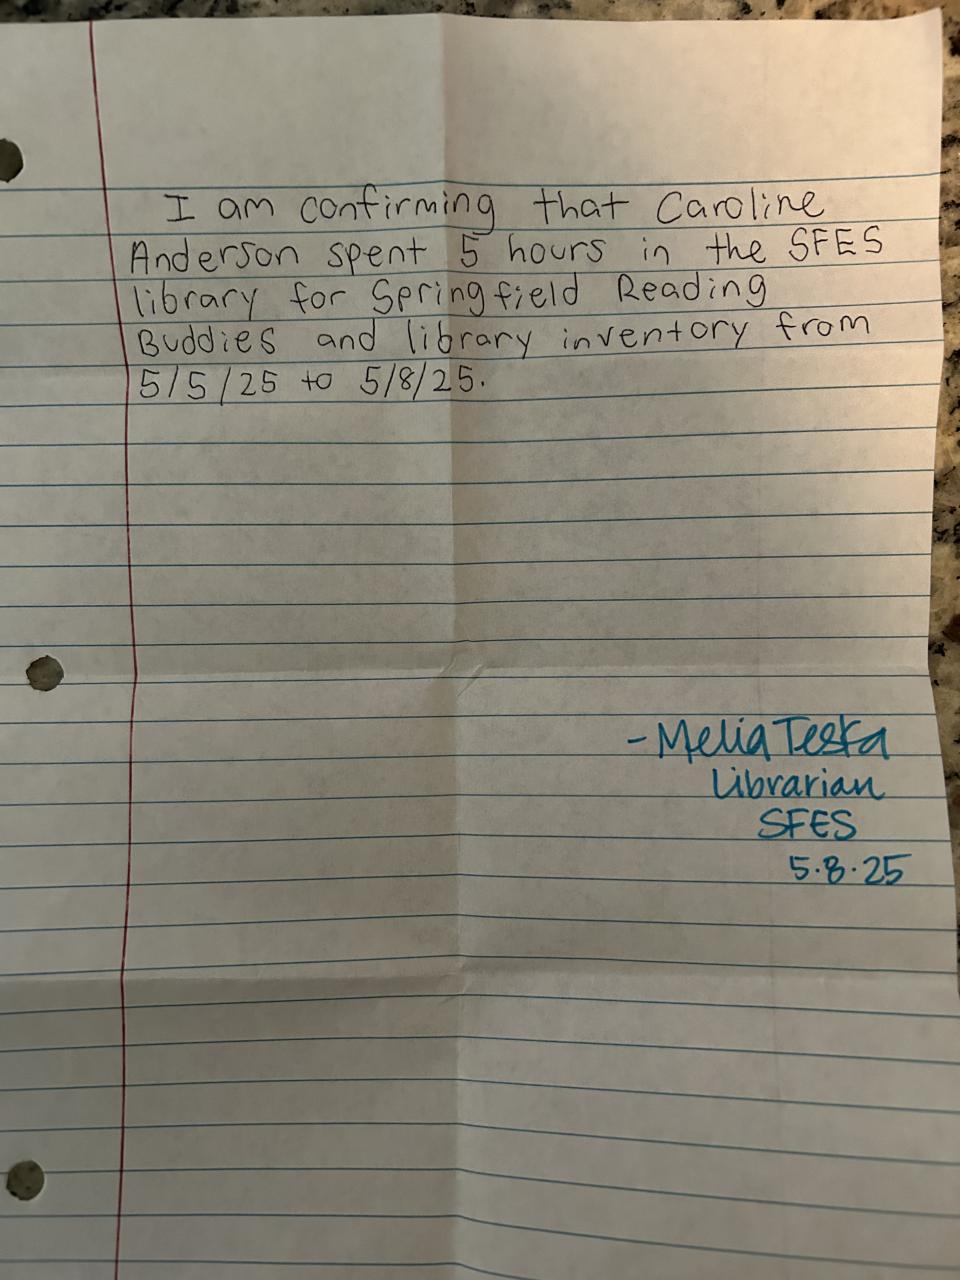 I am confirming that Caroline
Anderson spent 5 hours in the SFES
library for Springfield Reading
Buddies and library inventory from
5/5/25 to 5/8/25.
- Melia Teska
Librarian
SFES
5.8.25